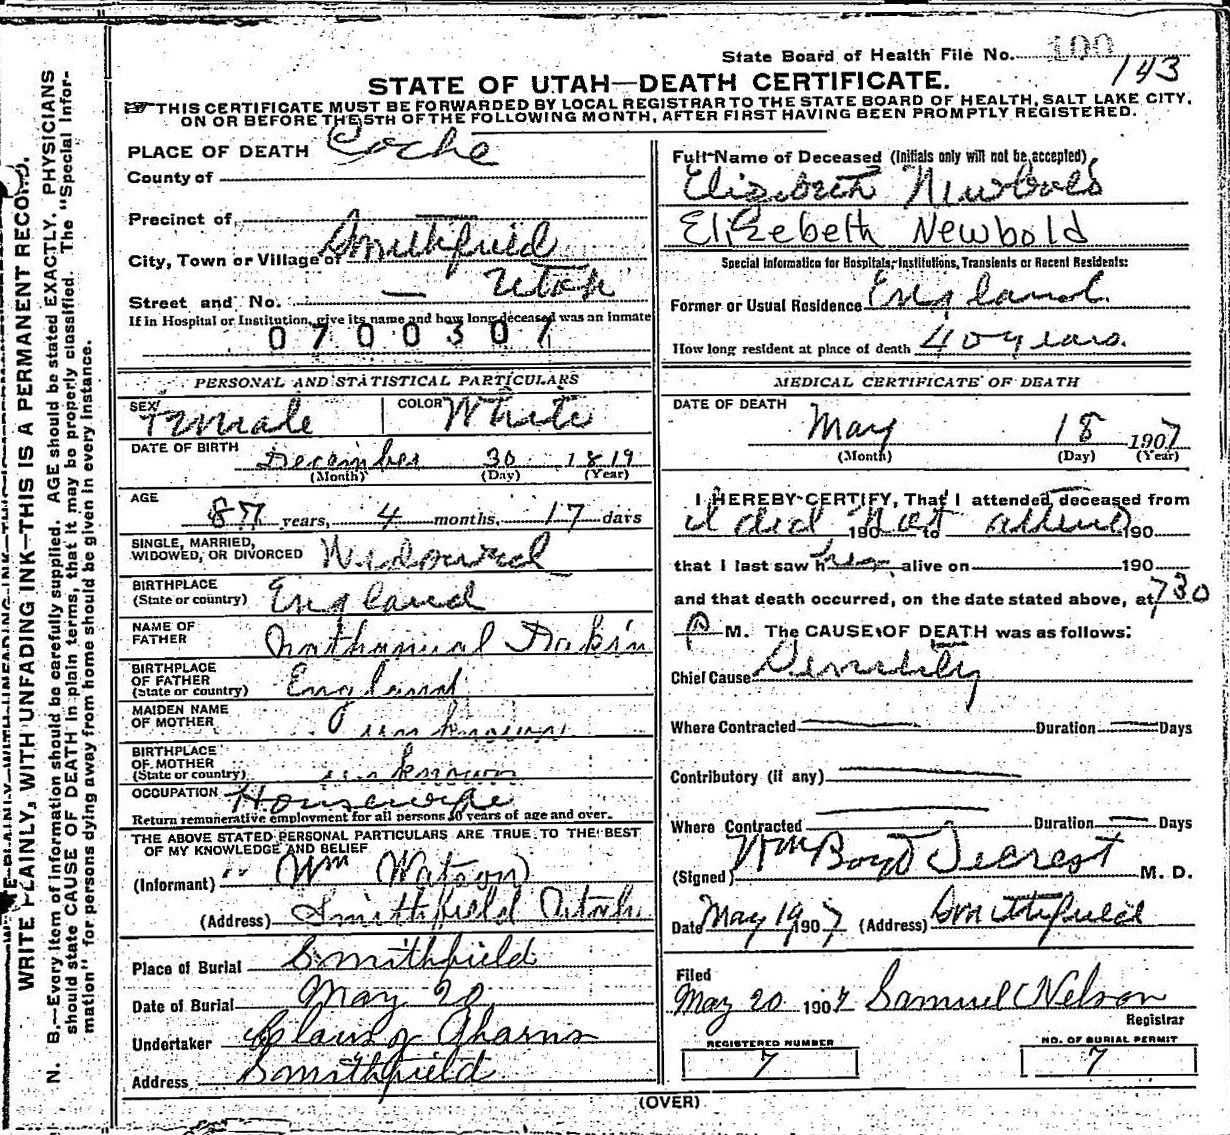 State Board of Health File No. 100
143
STATE OF UTAH—DEATH CERTIFICATE.
☞THIS CERTIFICATE MUST BE FORWARDED BY LOCAL REGISTRAR TO THE STATE BOARD OF HEALTH, SALT LAKE CITY,
ON OR BEFORE THE 5TH OF THE FOLLOWING MONTH, AFTER FIRST HAVING BEEN PROMPTLY REGISTERED.
PLACE OF DEATH Cache
County of
Precinct of
City, Town or Village of Smithfield
Street and No. — Utah
If in Hospital or Institution, give its name and how long deceased was an inmate
0700307
PERSONAL AND STATISTICAL PARTICULARS
SEX Female COLOR White
DATE OF BIRTH December 30 1819
(Month) (Day) (Year)
AGE 87 years, 4 months, 17 days
SINGLE, MARRIED,
WIDOWED, OR DIVORCED Widowed
BIRTHPLACE
(State or country) England
NAME OF
FATHER Nathanial Dakin
BIRTHPLACE
OF FATHER
(State or country) England
MAIDEN NAME
OF MOTHER unknown
BIRTHPLACE
OF MOTHER
(State or country) unknown
OCCUPATION Housewife
Return remunerative employment for all persons 10 years of age and over.
THE ABOVE STATED PERSONAL PARTICULARS ARE TRUE TO THE BEST
OF MY KNOWLEDGE AND BELIEF
(Informant) Wm Watson
(Address) Smithfield Utah
Place of Burial Smithfield
Date of Burial May 20
Undertaker
Address Smithfield
Full Name of Deceased (Initials only will not be accepted),
Elizabeth Newbold
Elizebeth Newbold
Special Information for Hospitals, Institutions, Transients or Recent Residents:
Former or Usual Residence England
How long resident at place of death 40 years.
MEDICAL CERTIFICATE OF DEATH
DATE OF DEATH
May 18 1907
(Month) (Day) (Year)
I HEREBY CERTIFY, That I attended deceased from
I did 190 not to attend 190
that I last saw her alive on 190
and that death occurred, on the date stated above, at 730
P M. The CAUSE OF DEATH was as follows:
Chief Cause Senility
Where Contracted — Duration — Days
Contributory (if any) —
Where Contracted — Duration — Days
(Signed) Wm Boyd M. D.
Date May 19 1907 (Address) Smithfield
Filed
May 20 1907 Samuel Nelson
Registrar
REGISTERED NUMBER
7
NO. OF BURIAL PERMIT
7
(OVER)
WRITE PLAINLY, WITH UNFADING INK—THIS IS A PERMANENT RECORD.
N. B.—Every item of information should be carefully supplied. AGE should be stated EXACTLY. PHYSICIANS
should state CAUSE OF DEATH in plain terms, that it may be properly classified. The "Special Infor-
mation" for persons dying away from home should be given in every instance.